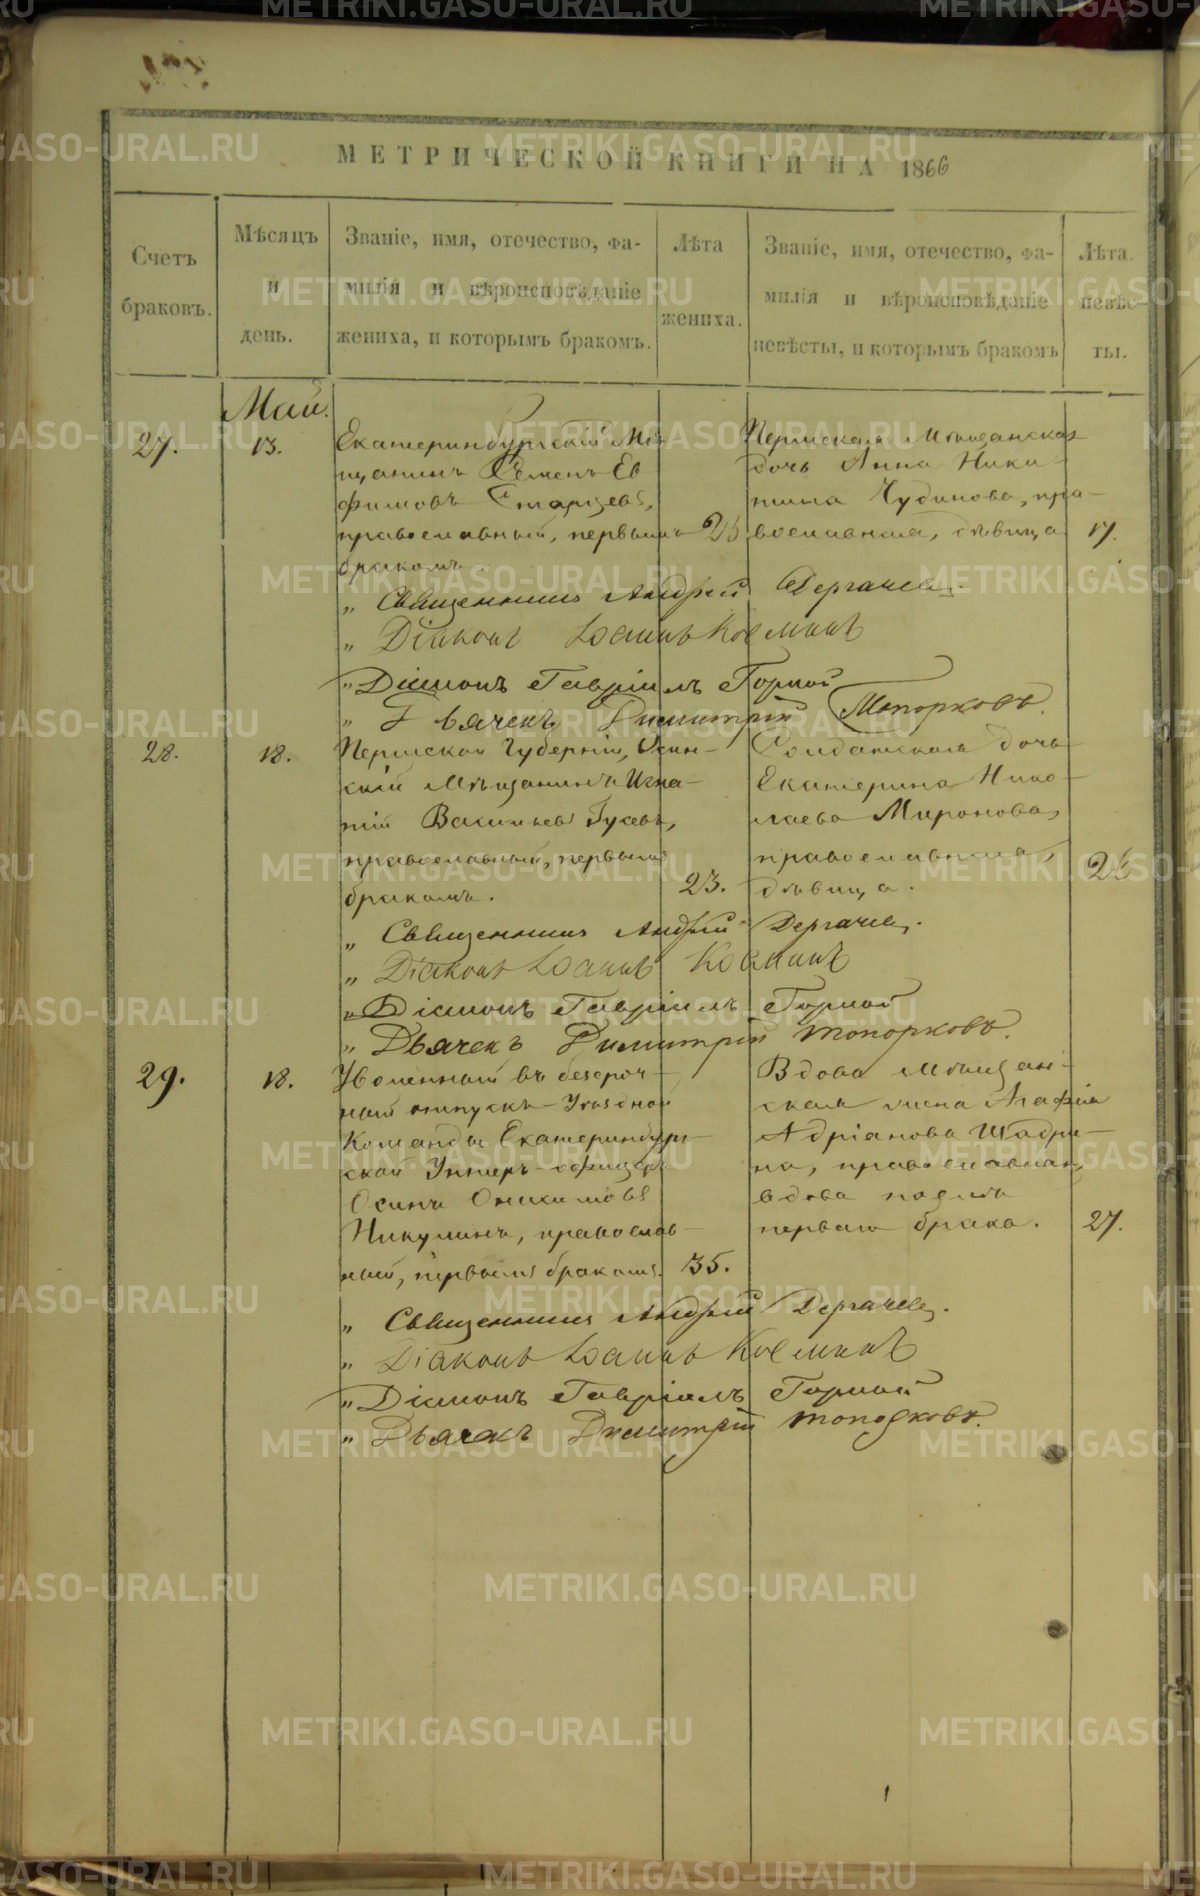 МЕТРИЧЕСКОЙ КНИГИ НА 1866
Счетъ браковъ.
Мѣсяцъ и день.
Званіе, имя, отечество, фа-
милія и вѣроисповѣданіе
жениха, и которымъ бракомъ.
Лѣта жениха.
Званіе, имя, отечество, фа-
милія и вѣроисповѣданіе
невѣсты, и которымъ бракомъ
Лѣта невѣс-
ты.
Май.
27.
13.
Екатеринбургскій Мѣ-
щанинъ Семенъ Ев
фимовъ Старцевъ,
православный, первымъ
бракомъ.
25
Пермская Мѣщанская
дочь Анна Ники-
тина Чудинова, пра-
вославная, дѣвица
17.
„ Священникъ Андрей Дергачев.
„ Діаконъ Іоаннъ Косминъ
„ Діаконъ Гавріилъ Горной
„ Дьячекъ Димитрій Топорковъ.
28.
18.
Пермской Губерніи, Осин-
скій Мѣщанинъ Игна-
тій Васильевъ Гусевъ,
православный, первымъ
бракомъ.
23.
Солдатская дочь
Екатерина Нико-
лаева Миронова,
православная,
дѣвица.
„ Священникъ Андрей Дергачев.
„ Діаконъ Іоаннъ Косминъ
„ Діаконъ Гавріилъ Горной
„ Дьячекъ Димитрій Топорковъ.
29.
18.
Уволенный въ безсроч-
ный отпускъ Уѣздной
Команды Екатеринбург-
ской Унтеръ-офицеръ
Осипъ Онисимовъ
Никулинъ, православ-
ный, первымъ бракомъ.
35.
Вдова Мѣщан-
ская жена Агафія
Адріанова Шадри-
на, православная,
вдова послѣ
перваго брака.
27.
„ Священникъ Андрей Дергачев.
„ Діаконъ Іоаннъ Косминъ
„ Діаконъ Гавріилъ Горной
„ Дьячекъ Димитрій Топорковъ.
METRIKI.GASO-URAL.RU